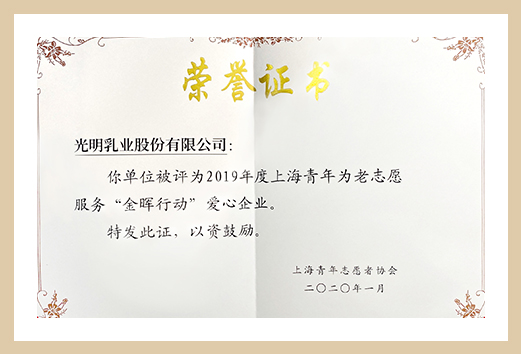 荣誉证书
光明乳业股份有限公司：
你单位被评为2019年度上海青年为老志愿
服务“金晖行动”爱心企业。
特发此证，以资鼓励。
上海青年志愿者协会
二〇二〇年一月